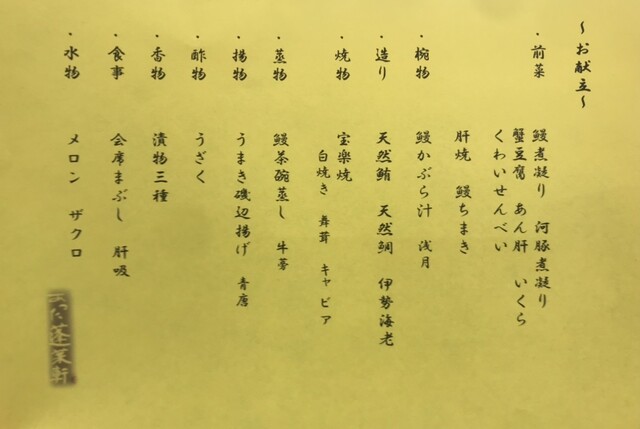 ～お献立～
・前菜 鰻煮凝り 河豚煮凝り
蟹豆腐 あん肝 いくら
くわいせんべい
肝焼 鰻ちまき
・椀物 鰻かぶら汁 浅月
・造り 天然鮪 天然鯛 伊勢海老
・焼物 宝楽焼
白焼き 舞茸 キャビア
・蒸物 鰻茶碗蒸し 牛蒡
・揚物 うまき磯辺揚げ 青唐
・酢物 うざく
・香物 漬物三種
・食事 会席まぶし 肝吸
・水物 メロン ザクロ
あつた蓬莱軒